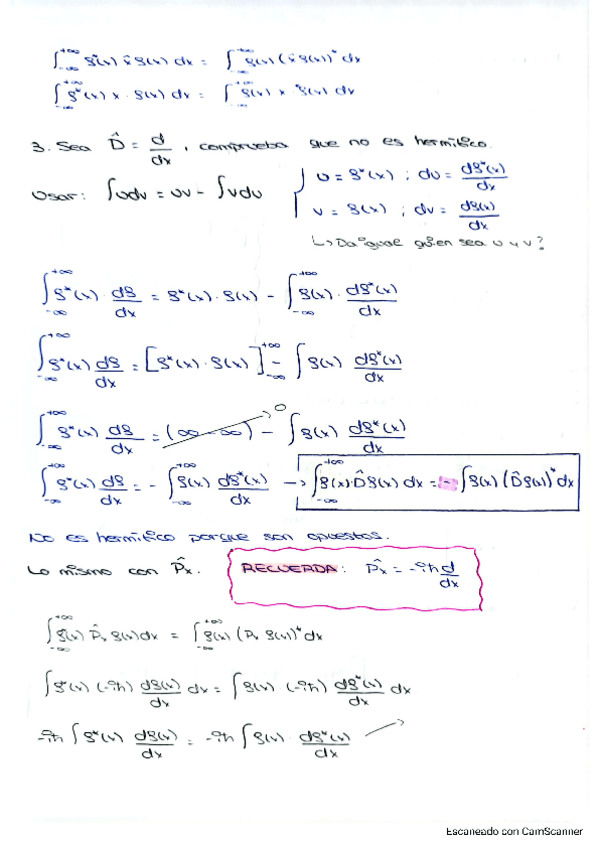 ∫_{-∞}^{+∞} g*(x) x̂ g(x) dx = ∫_{-∞}^{+∞} g(x) (x̂ g(x))* dx
∫_{-∞}^{+∞} g*(x) x · g(x) dx = ∫_{-∞}^{+∞} g(x) x g(x) dx
3. Sea D̂ = d/dx , comprueba que no es hermítico.
Usar: ∫udv = uv - ∫vdu { u = g*(x) ; du = dg*(x)/dx
v = g(x) ; dv = dg(x)/dx
↳ Da igual quien sea u y v?
∫_{-∞}^{+∞} g*(x) · dg/dx = g*(x) · g(x) - ∫_{-∞}^{+∞} g(x) · dg*(x)/dx
∫_{-∞}^{+∞} g*(x) dg/dx = [g*(x) · g(x)]_{-∞}^{+∞} - ∫ g(x) dg*(x)/dx
∫_{-∞}^{+∞} g*(x) dg/dx = (∞ - ∞)→0 - ∫ g(x) dg*(x)/dx
∫_{-∞}^{+∞} g*(x) dg/dx = - ∫_{-∞}^{+∞} g(x) dg*(x)/dx → ∫_{-∞}^{+∞} g(x) D̂ g(x) dx = - ∫ g(x) (D̂ g(x))* dx
No es hermítico porque son opuestos.
Lo mismo con P̂x. RECUERDA: P̂x = -iħ d/dx
∫_{-∞}^{+∞} g(x) P̂x g(x) dx = ∫_{-∞}^{+∞} g(x) (Px g(x))* dx
∫ g*(x) (-iħ) dg(x)/dx dx = ∫ g(x) (-iħ) dg*(x)/dx dx
-iħ ∫ g*(x) dg(x)/dx = -iħ ∫ g(x) · dg*(x)/dx →
Escaneado con CamScanner